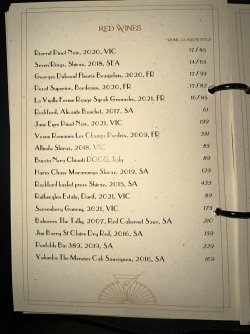 RED WINES
Pinot Noir, 2020, VIC 17 / 85
Seven Rings, Shiraz, 2018, SEA 14 / 65
Georges Duboeuf Fleurie Beaujolais, 2020, FR 17 / 95
Superior, Bordeaux, 2020, FR 17 / 82
La Vieille Ferme Rouge Syrah Grenache, 2021, FR 16 / 85
Rockford, Alicante Bouchet, 2017, SA 61
Jane Eyre Pinot Noir, 2021, VIC 199
Vosne Romanée Les Champs Perdrix, 2009, FR 551
Allinda Shiraz, 2018, VIC 85
Buccia Nera Chianti DOCG, Italy 89
Chase Marananga Shiraz, 2019, SA 129
Rockford basket press Shiraz, 2015, SA 435
Rutherglen Estate, Durif, 2021, VIC 89
Sorrenberg Gamay, 2021, VIC 175
Balnaves The Tally, 2007, Red Cabernet Sauv, SA 210
Jim Barry St Claire Dry Red, 2016, SA 159
Penfolds Bin 389, 2019, SA 229
Yalumba The Menzies Cab Sauvignon, 2016, SA 169